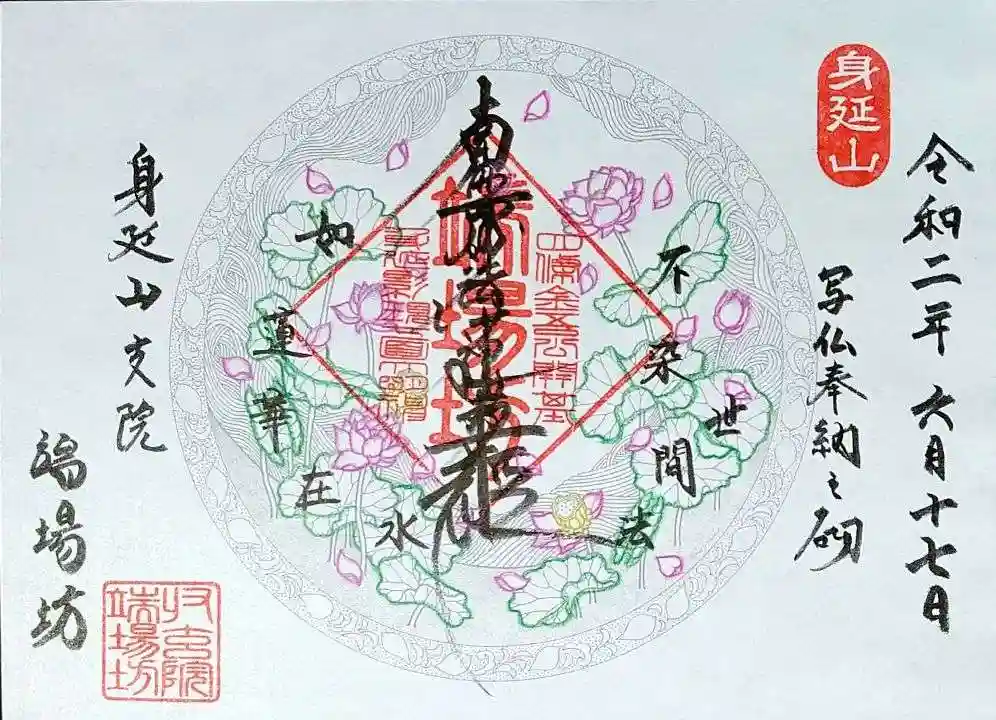 身延山
令和二年 六月十七日
写仏奉納之砌
不染世間法
四條金吾公開基
南無妙法蓮華経
端場坊
如蓮華在水
身延山支院
端場坊
端場坊